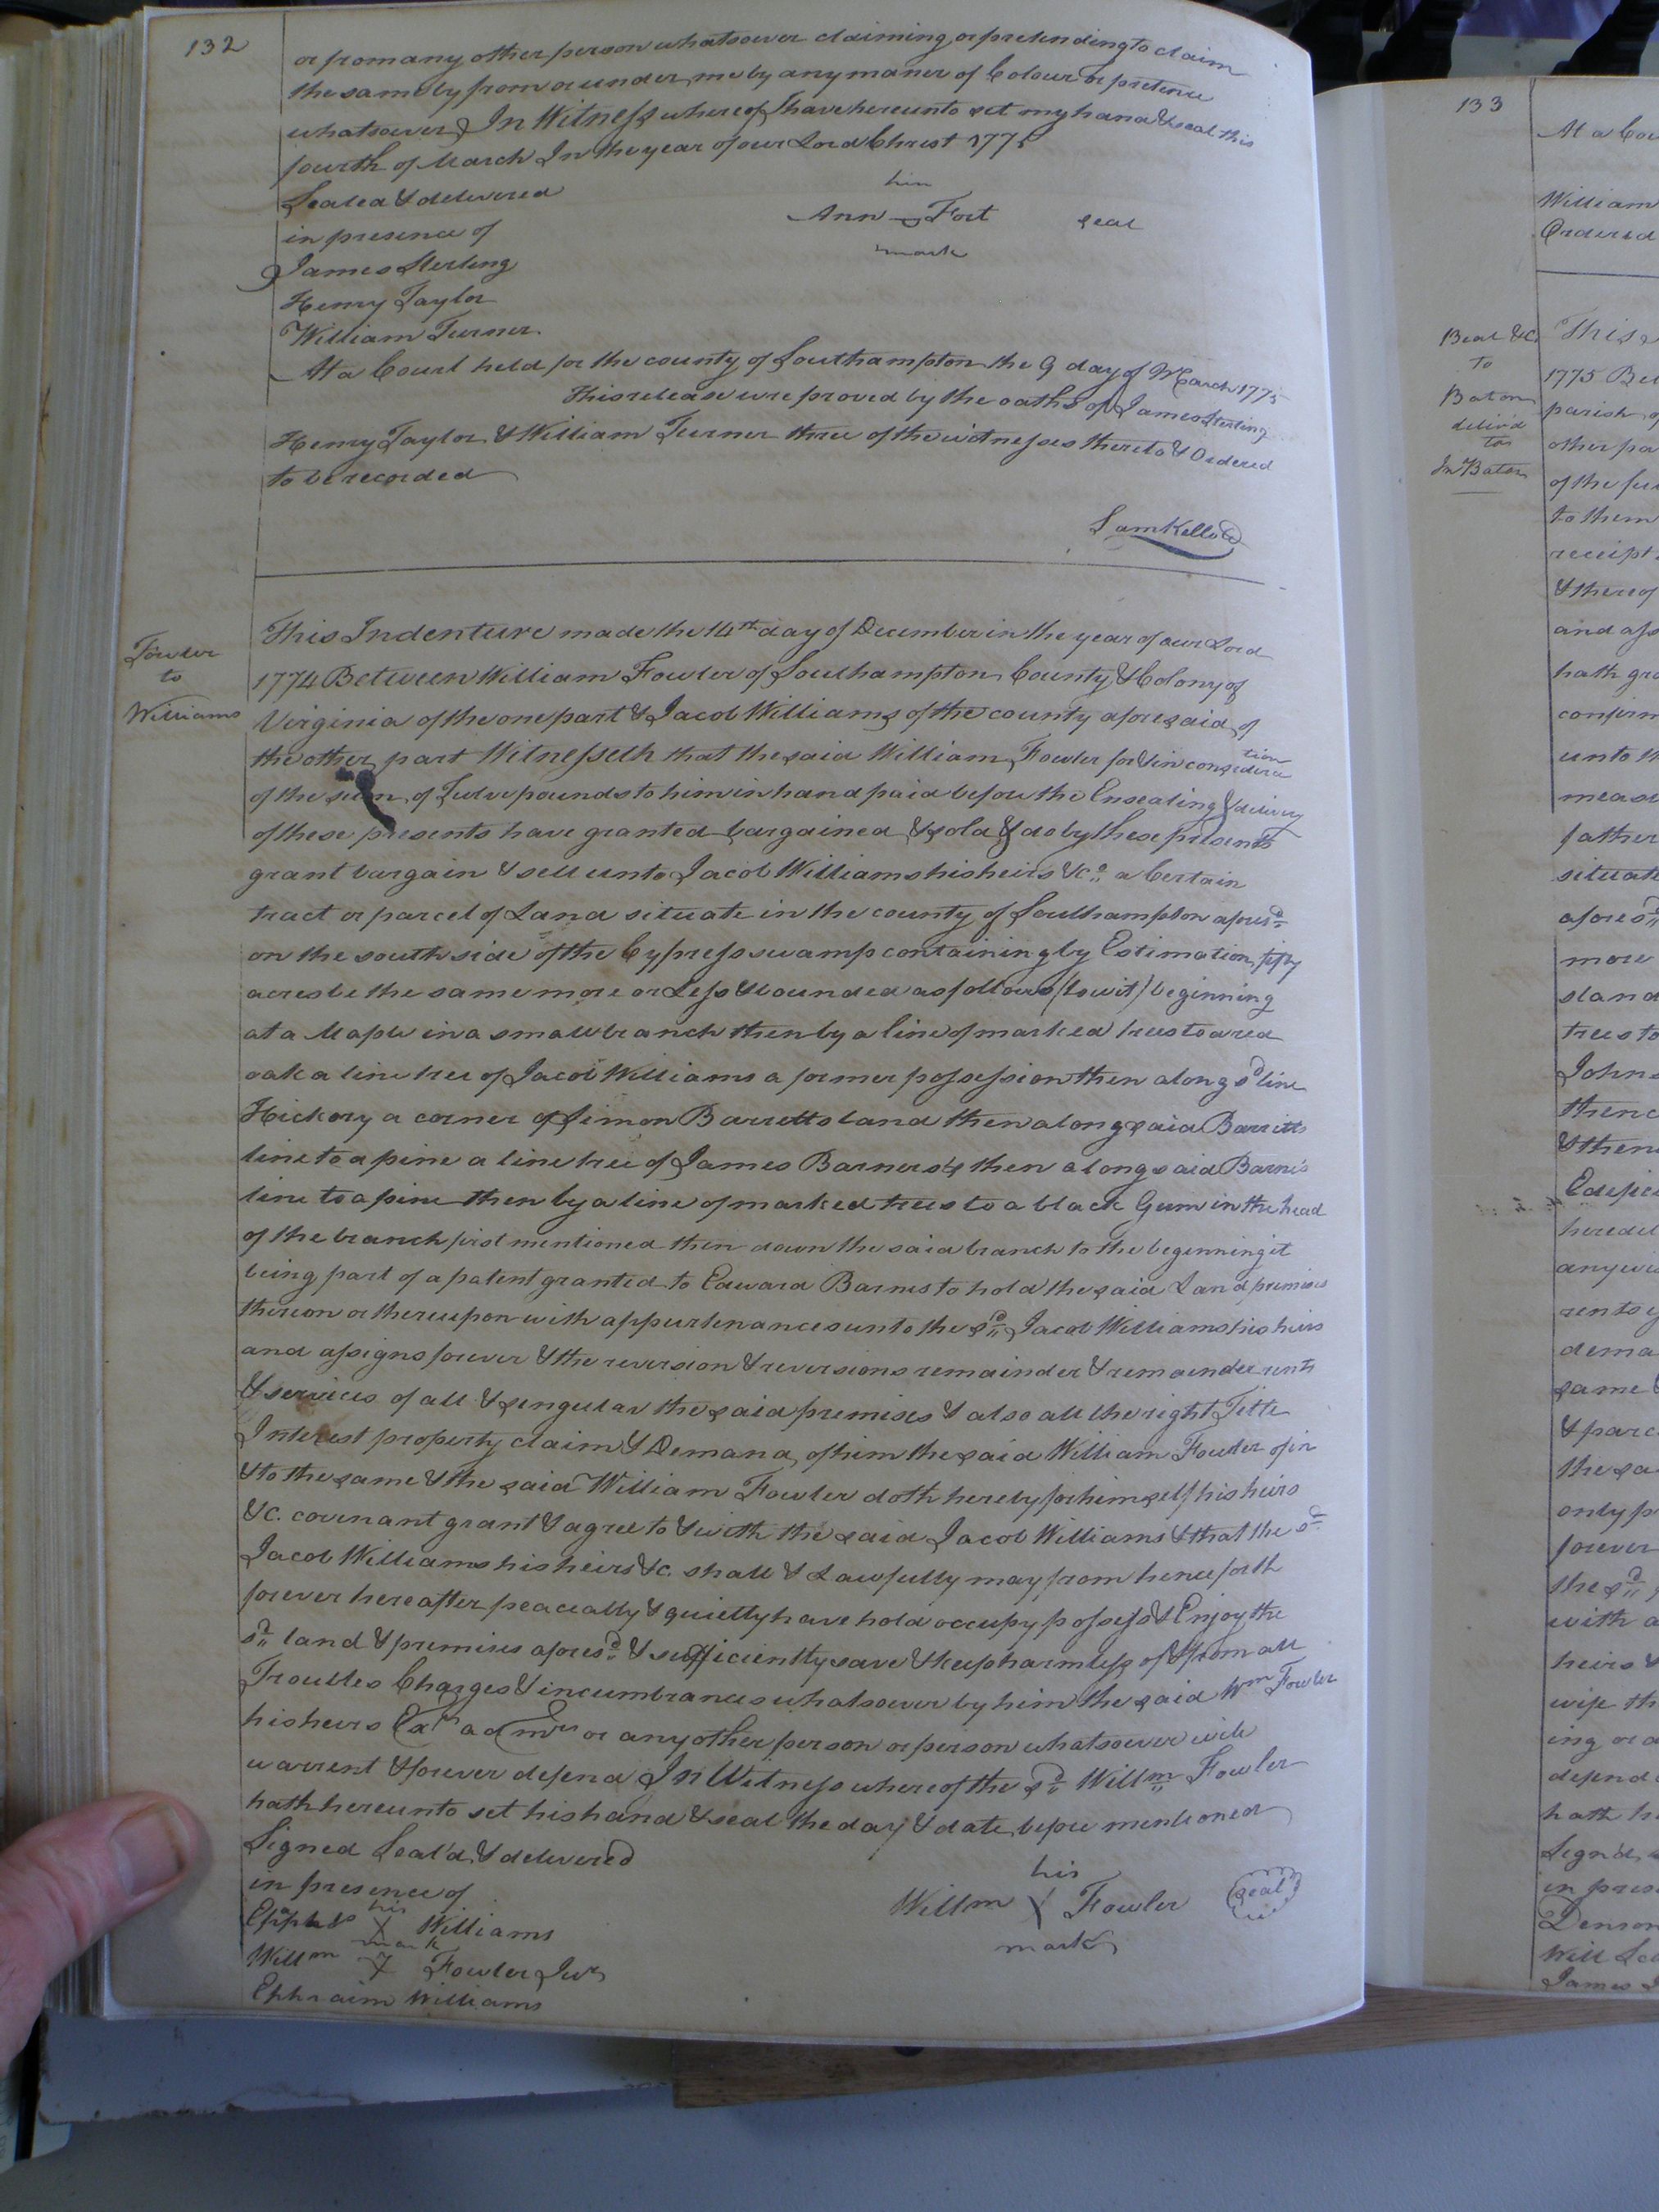 132
or from any other person whatsoever claiming or pretending to claim
the same by from or under me by any maner of Colour or pretence
whatsoever In Witness whereof I have hereunto set my hand & seal this
fourth of March In the year of our Lord Christ 1775
Sealed & delivered
in presence of
James Sterling
Henry Taylor
William Turner
her
Ann Fort seal
mark
At a Court held for the county of Southampton the 9 day of March 1775
This release were proved by the oaths of James Sterling
Henry Taylor & William Turner three of the witnesses thereto & Ordered
to be recorded
Sam Kello
Fowler
to
Williams
This Indenture made the 14th day of December in the year of our Lord
1774 Between William Fowler of Southampton County & Colony of
Virginia of the one part & Jacob Williams of the county aforesaid of
the other part Witnesseth that the said William Fowler for & in consideration
of the sum of Twelve pounds to him in hand paid before the Ensealing & delivery
of these presents have granted bargained & sold & do by these presents
grant bargain & sell unto Jacob Williams his heirs &c a Certain
tract or parcel of Land situate in the county of Southampton afores.d
on the south side of the Cypress swamp containing by Estimation fifty
acres be the same more or Less & bounded as follows (towit) beginning
at a Maple in a small branch then by a line of marked trees to a red
oak a line tree of Jacob Williams a former possession then along s.d line
Hickory a corner of Simon Barretts land then along said Barretts
line to a pine a line tree of James Barnes's then along said Barnes
line to a pine then by a line of marked trees to a black Gum in the head
of the branch first mentioned then down the said branch to the beginning it
being part of a patent granted to Edward Barnes to hold the said Land premises
thereon or thereupon with appurtenances unto the s.d Jacob Williams his heirs
and assigns forever & the reversion & reversions remainder & remainder rents
& services of all & singular the said premises & also all the right Title
Interest property claim & Demand of him the said William Fowler of in
& to the same & the said William Fowler doth hereby for himself his heirs
&c. covenant grant & agree to & with the said Jacob Williams & that the s.d
Jacob Williams his heirs &c. shall & Lawfully may from hence forth
forever hereafter peaceally & quietly have hold occupy possess & Enjoy the
s.d land & premises afores.d & sufficiently save & keep harmless of & from all
Troubles Charges & incumbrances whatsoever by him the said Wm Fowler
his heirs Exrs admrs or any other person or person whatsoever will
warrent & forever defend In Witness whereof the s.d Willm Fowler
hath hereunto set his hand & seal the day & date before mentioned
Signed Seal'd & delivered
in presence of
his
Williams
mark
Willm Fowler Junr
Ephraim Williams
his
Willm X Fowler seal
mark
133
At a Cou
William
Ordered
Beal &c
to
Baton
deliv'd
to
Jn Baton
This
1775 Bet
parish of
other pa
of the
to them
receipt
& thereof
and ass
hath gra
confirm
unto th
meas
father
situate
afores.d
more
stand
trees to
John
thenc
& then
Edefic
hered
anywi
rents
dema
same
& parc
the sa
only p
forever
the s.d
with a
heirs &
wife th
ing or a
defend
hath h
Sign'd
in pres
Denson
Will
James